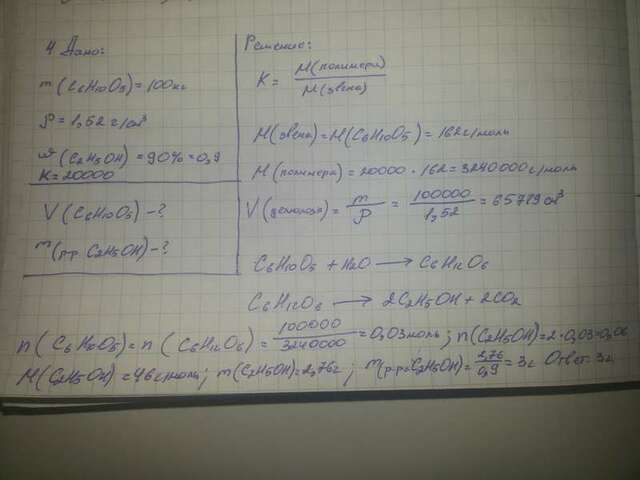 4 Дано:
m(C6H10O5)=100кг
ρ=1,52 г/см³
ω(C2H5OH)=90%=0,9
K=20000
V(C6H10O5)-?
m(р-р. C2H5OH)-?
Решение:
K= M(полимера)/M(звена)
M(звена)=M(C6H10O5)=162г/моль
M(полимера)=20000·162=3240000г/моль
V(целлюлоза)= m/ρ = 100000/1,52 =65789см³
C6H10O5+H2O → C6H12O6
C6H12O6 → 2C2H5OH+2CO2
n(C6H10O5)=n(C6H12O6)= 100000/3240000 =0,03моль; n(C2H5OH)=2·0,03=0,06
M(C2H5OH)=46г/моль; m(C2H5OH)=2,76г; m(р-ра C2H5OH)= 2,76/0,9 =3г Ответ: 3г.